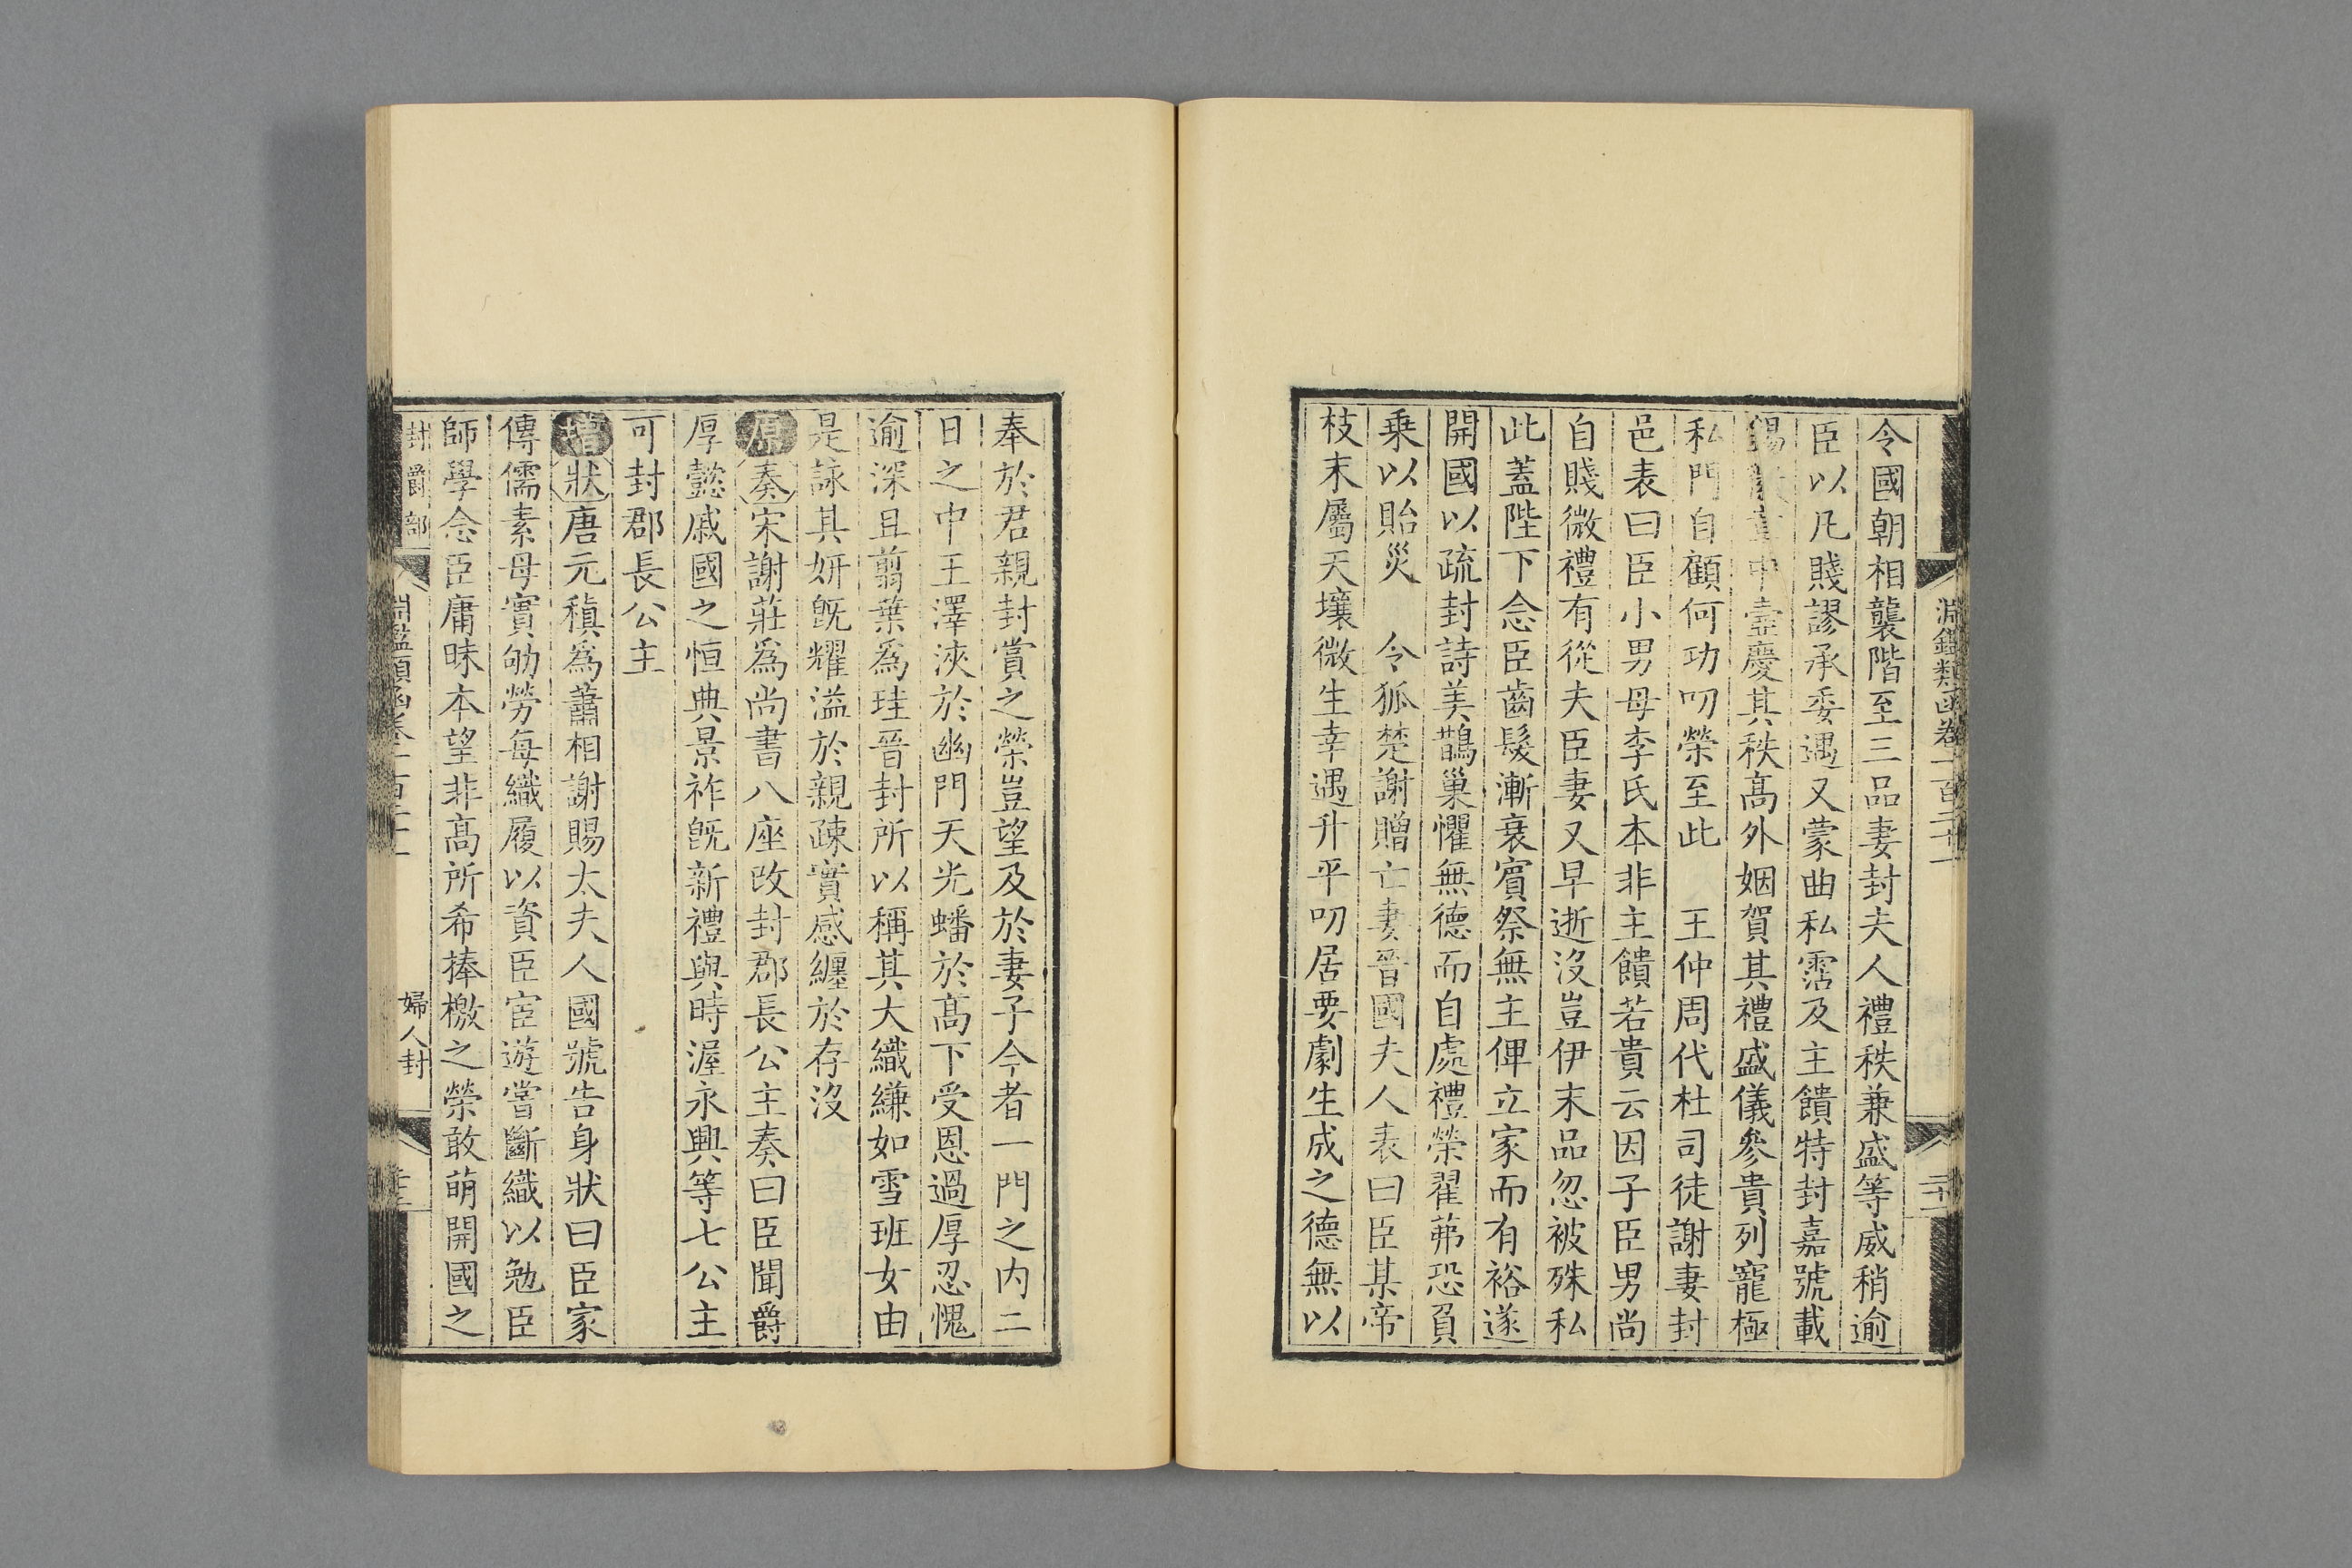 淵鑑類函卷一百二十一
令國朝相襲階至三品妻封夫人禮秩兼盛等威稍逾
臣以凡賤謬承委遇又蒙曲私霑及主饋特封嘉號載
錫 中壼慶其秩髙外姻賀其禮盛儀參貴列寵極
私門自顧何功叨榮至此 王仲周代杜司徒謝妻封
邑表曰臣小男母李氏本非主饋若貴云因子臣男尚
自賤微禮有從夫臣妻又早逝沒豈伊末品忽被殊私
此蓋陛下念臣齒髮漸衰賓祭無主俾立家而有裕遂
開國以疏封詩美鵲巢懼無德而自處禮榮翟茀恐負
乗以貽災 令狐楚謝贈亡妻晉國夫人表曰臣某帝
枝末屬天壤微生幸遇升平叨居要劇生成之德無以
奉於君親封賞之榮豈望及於妻子今者一門之內二
日之中王澤浹於幽門天光蟠於髙下受恩過厚忍愧
逾深且翦葉爲珪晉封所以稱其大織縑如雪班女由
是詠其妍旣耀溢於親疎實感纏於存沒
原奏宋謝莊爲尚書八座改封郡長公主奏曰臣聞爵
厚懿戚國之恒典景祚旣新禮與時渥永興等七公主
可封郡長公主
增狀唐元稹爲蕭相謝賜太夫人國號告身狀曰臣家
傳儒素母實劬勞每織履以資臣宦遊嘗斷織以勉臣
師學念臣庸昧本望非髙所希捧檄之榮敢萌開國之
封爵部 婦人封